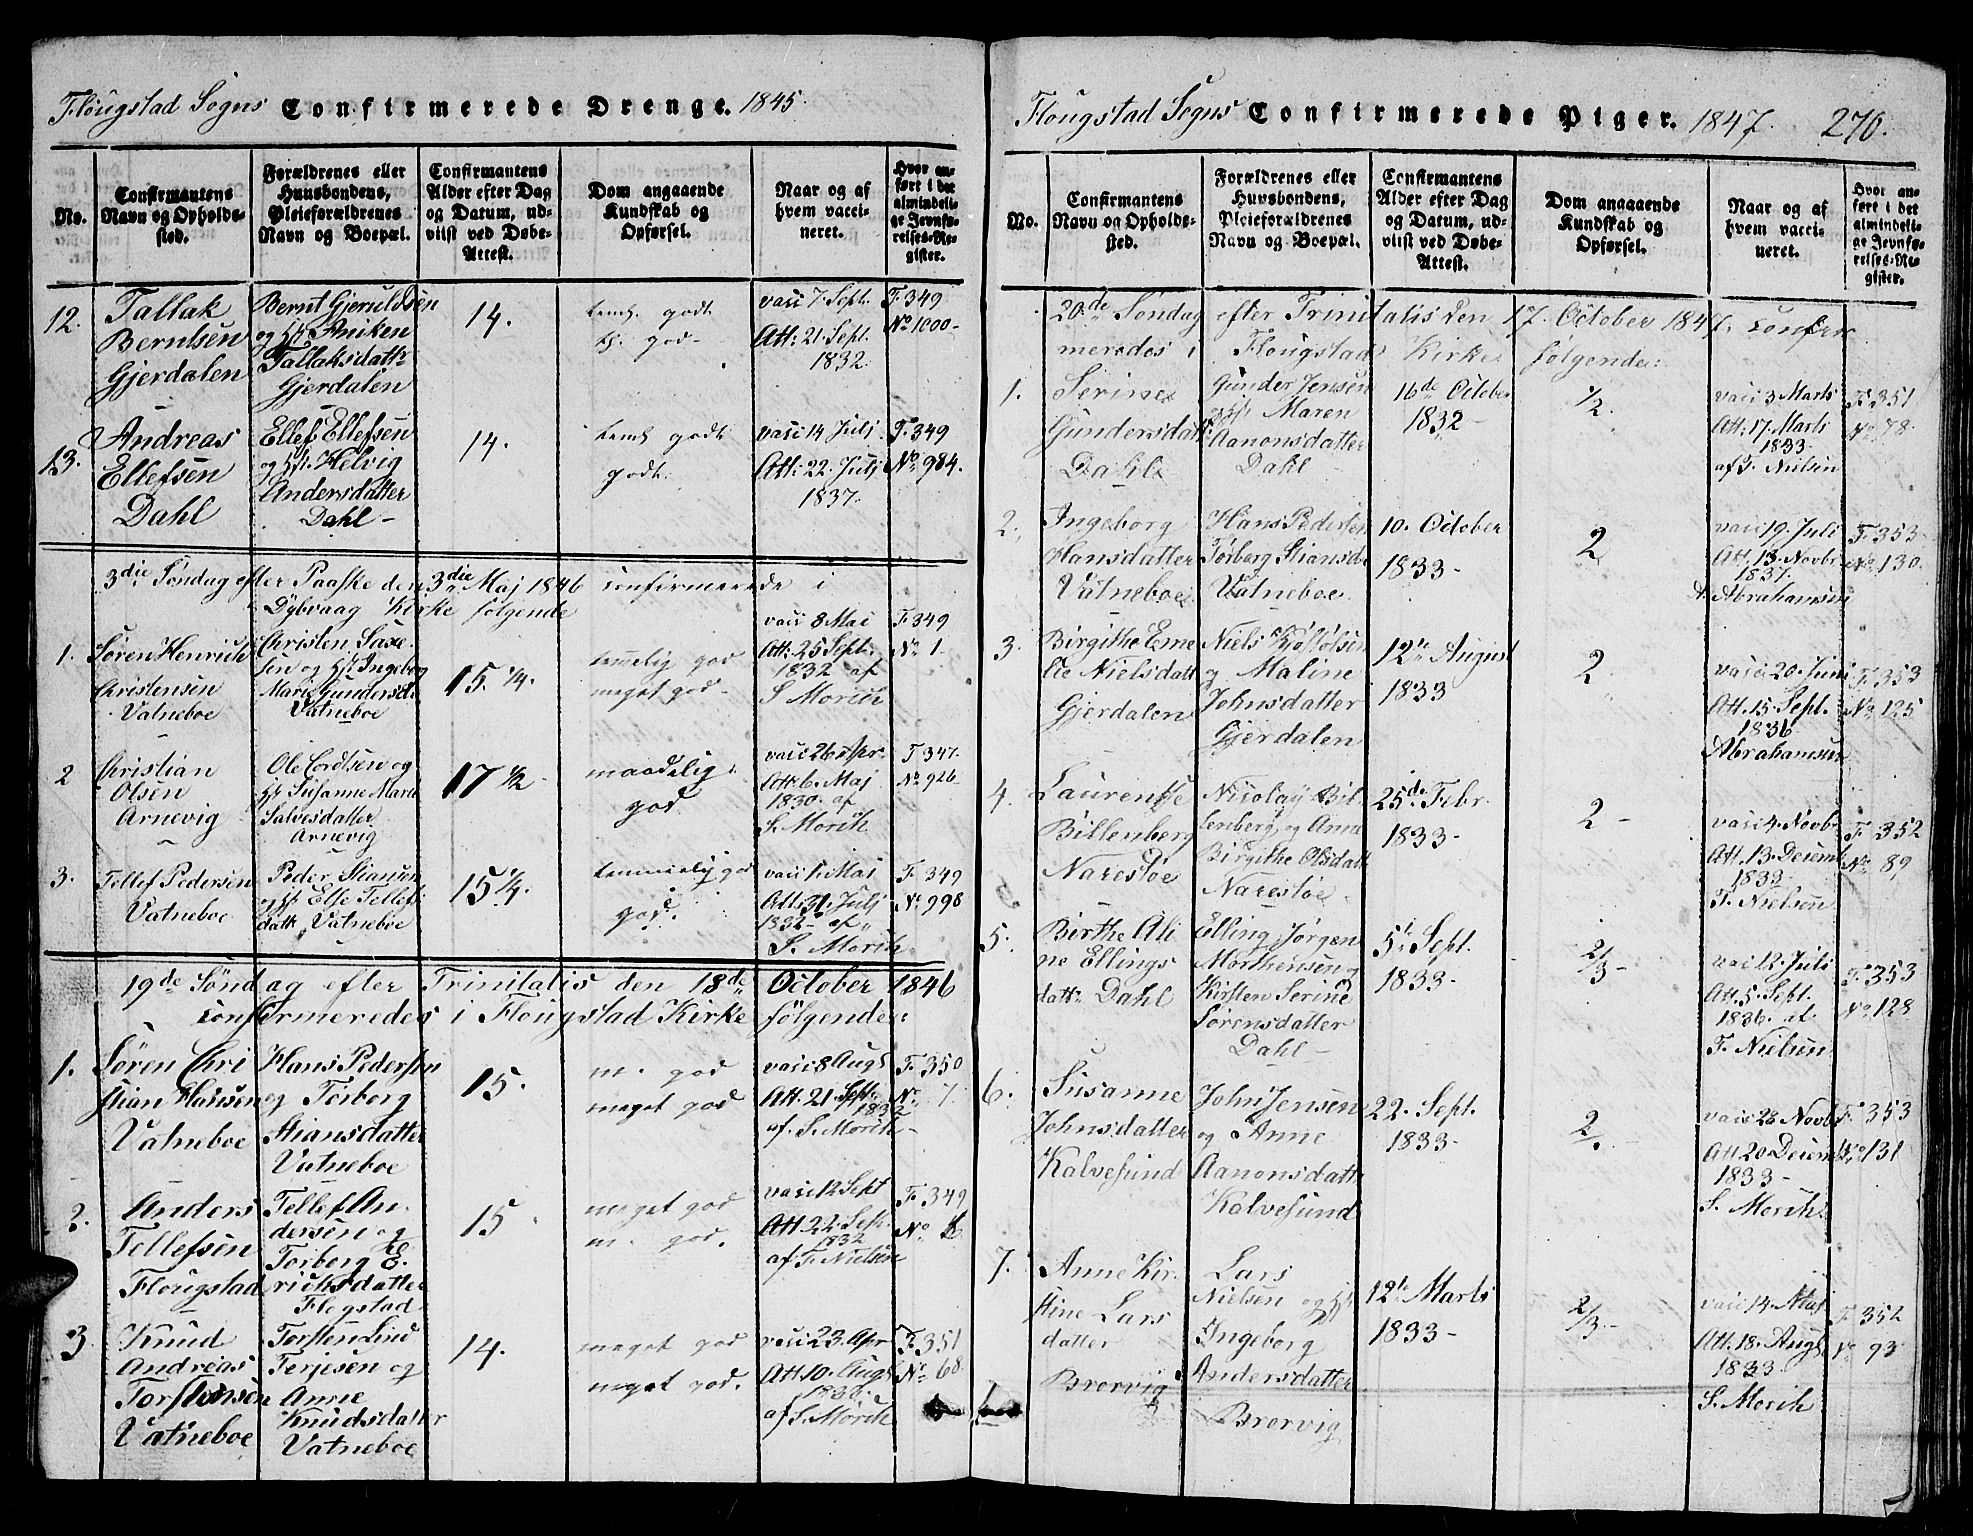 Flougstad Sogns Confirmerede Drenge. 1845.
No.
Confirmantens Navn og Opholdssted.
Forældrenes eller Huusbondens, Pleieforældrenes Navn og Boepæl.
Confirmantens Alder efter Dag og Datum, udviist ved Døbe-Attest.
Dom angaaende Kundskab og Opførsel.
Naar og af hvem vaccineret.
Hvor anført i det almindelige Jevnførelses-Register.
12. Tallak Berntsen Gjerdalen
Bernt Gjeruldsen og Hst Aniken Tallaksdattr Gjerdalen
14.
vacc 7 Sept. Att: 21. Sept. 1832
F. 349 No 1000-
13. Andreas Ellefsen Dahl
Ellef Ellefsen og Hst. Helvig Andersdatter Dahl-
14.
temb godt godt.
vacc 14 Julj Att: 22. Julj 1837.
F. 349 No 984.
3die Søndag efter Paaske den 3die Maj 1846 confirmerede i
Dybvaag Kirke følgende
1. Søren Henrich Christensen Vatneboe
Christen Saxesen og Hst Ingeborg Marie Gundersdr Vatneboe
15. 1/4.
temelig god meget god-
vacc 8 Mai Att: 25 Sept: 1832 af S Morich
F. 349 No 1-
2 Christian Olsen Arnevig
Ole Cordtsen og Hst Susanne Marie Salvesdatter Arnevig
17 1/2-
maadelig god
vacc 26 Apr. Att: 6. Maj 1830. af S. Morich
F 347. No 926-
3. Tellef Pedersen Vatneboe
Peder Stiansen og Hst Else Tellefsdattr Vatneboe
15 1/4.
temmelig god god.
vacc 1. Maj Att: 31 Julj 1832- af S. Morich
F. 349 No 998
19de Søndag efter Trinitatis den 18de October 1846
confirmeredes i Flougstad Kirke følgende:
1. Søren Christian Hansen Vatneboe
Hans Pedersen og Torborg Stiansdatter Vatneboe
15.
m. god meget god
vacc 8 Augt Att: 21 Sept. 1832 af. S. Morich-
F. 350 No 7.
2. Anders Tellefsen Flougstad
Tellef Andersen og Torberg Erichsdatter Flogstad
15.
meget god m. god.
vacc 12 Sept Att: 22. Sep. 1832 af F. Nielsen
F. 349 No
3 Knud Andreas Torstensen Vatneboe
Torsten Lind Terjesen og Anne Knudsdatter Vatneboe
14.
meget god meget god.
vacc 23. Apr Att 10. Augt af S. Morich
F. 351 No 68.
Flougstad Sogns Confirmerede Piger. 1847. 270.
No.
Confirmantens Navn og Opholdssted.
Forældrenes eller Huusbondens, Pleieforældrenes Navn og Boepæl.
Confirmantens Alder efter Dag og Datum, udviist ved Døbe-Attest.
Dom angaaende Kundskab og Opførsel.
Naar og af hvem vaccineret.
Hvor anført i det almindelige Jevnførelses-Register.
20de Søndag efter Trinitatis den 17. October 1847. confir
meredes i Flougstad Kirke følgende:
1. Serine Gundersdatt: Dahl
Gunder Jensen og Hst Maren Aanonsdatter Dahl
16de October 1832-
1/2
vacc 3 Marts Att: 17. Marts 1833- af F. Nielsen
F. 351 No 78.
2. Ingeborg Hansdatter Vatneboe
Hans Pedersen Torberg Stiansdr Vatneboe
10. October 1833-
2
vacc 19. Juli Att. 13. Novbr 1837. Abrahamsen
F. 353- No 130.
3. Birgithe Emelie Nielsdatt Gjerdalen
Niels Kjøstolsen og Maline Johnsdatter Gjerdalen
12te August 1833
2
vacc 20. Juni Att. 15. Sept. 1836 Abrahamsen
F. 353 No 125
4. Laurentse Billenberg Narestøe
Nicolay Billenberg og Anne Birgithe Olsdatt Narestøe
25de Febr. 1833-
2-
vacc 4. Novbr Att. 13. Decemb 1833- F. Nielsen
F. 352 No 89,
5. Birthe Aline Ellingsdattr Dahl
Elling Jørgen Morthensen og Kirsten Serine Sørensdatter Dahl-
5te Sept. 1833-
2/3-
vacc 12 Juli Att. 5. Sept. 1836. af F. Nielsen
F. 353 No 128
6. Susanne Johnsdatter Kalvesund
John Jensen og Anne Aanonsdattr Kalvesund
22. Sept. 1833-
2/.-
vacc 28 Novbr Att. 20 Decemb 1833- S. Morich
F. 353 No 131
7. Anne Kirstine Larsdatter Brorvig
Lars Nielsen og Hst Ingeborg Andersdatter Brorvig
12te Marts 1833-
2/3-
vacc 14. Maj Att. 18. Augt 1833. S. Morich
F. 352 No 93-